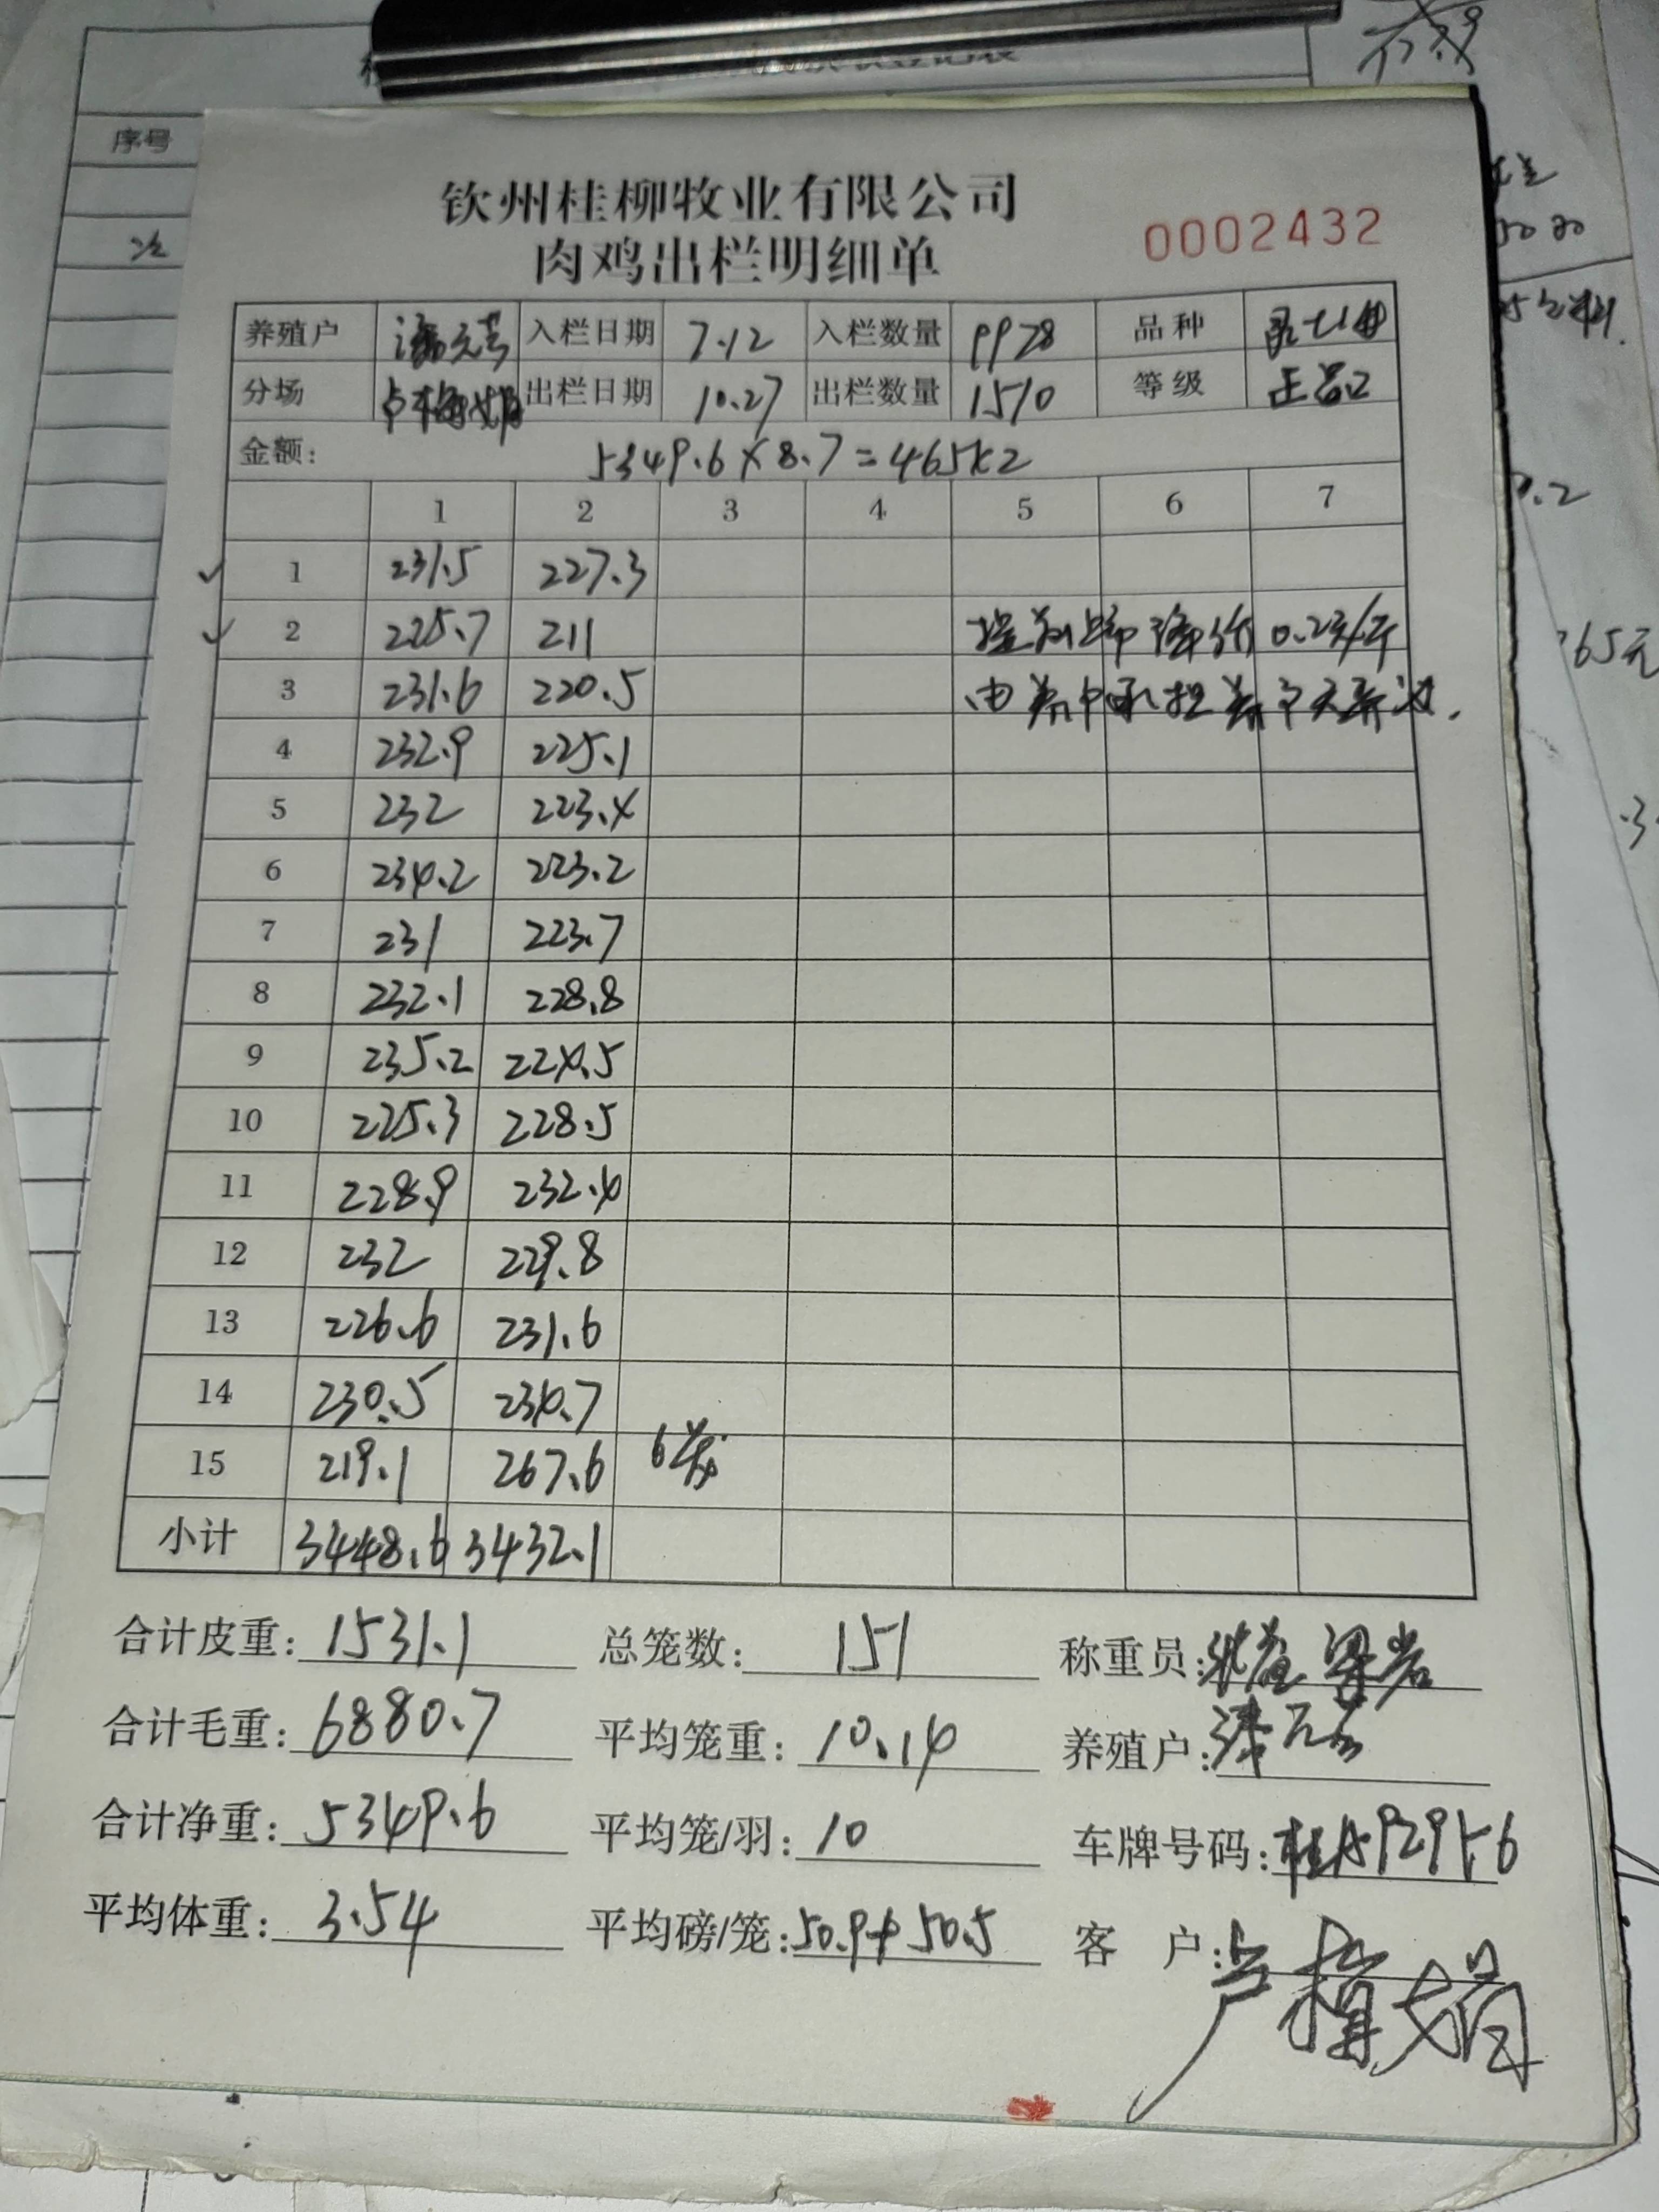 序号
钦州桂柳牧业有限公司
肉鸡出栏明细单
0002432
养殖户 入栏日期 7.12 入栏数量 9978 品种
分场 出栏日期 10.27 出栏数量 1510 等级 正品
金额: 5349.6×8.7=46542
1 2 3 4 5 6 7
1 231.5 227.3
2 225.7 211 0.2元/斤
3 231.6 220.5
4 232.9 225.1
5 232 223.4
6 234.2 223.2
7 231 223.7
8 232.1 228.8
9 235.2 224.5
10 225.3 228.5
11 228.9 232.4
12 232 229.8
13 226.6 231.6
14 230.5 234.7
15 219.1 267.6 6
小计 3448.6 3432.1
合计皮重: 1531.1 总笼数: 151 称重员:
合计毛重: 6880.7 平均笼重: 10.14 养殖户:
合计净重: 5349.6 平均笼/羽: 10 车牌号码:
平均体重: 3.54 平均磅/笼: 50.9+50.5 客 户: